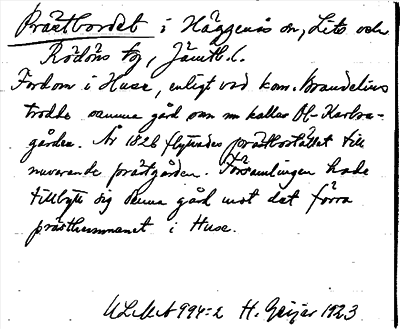 Prästbordet i Häggenås sn, Lits och
Rödöns tg, Jämtl. l.
Fordom i Huse, enligt vad kom. Brandelius
trodde samma gård som nu kallas Ol-Karlsa-
gården. År 1826 flyttades prästbostället till
nuvarande prästgården. Församlingen hade
tillbytt sig denna gård mot det förra
prästhemmanet i Huse.
ULMA 994:2 H. Geijer 1923